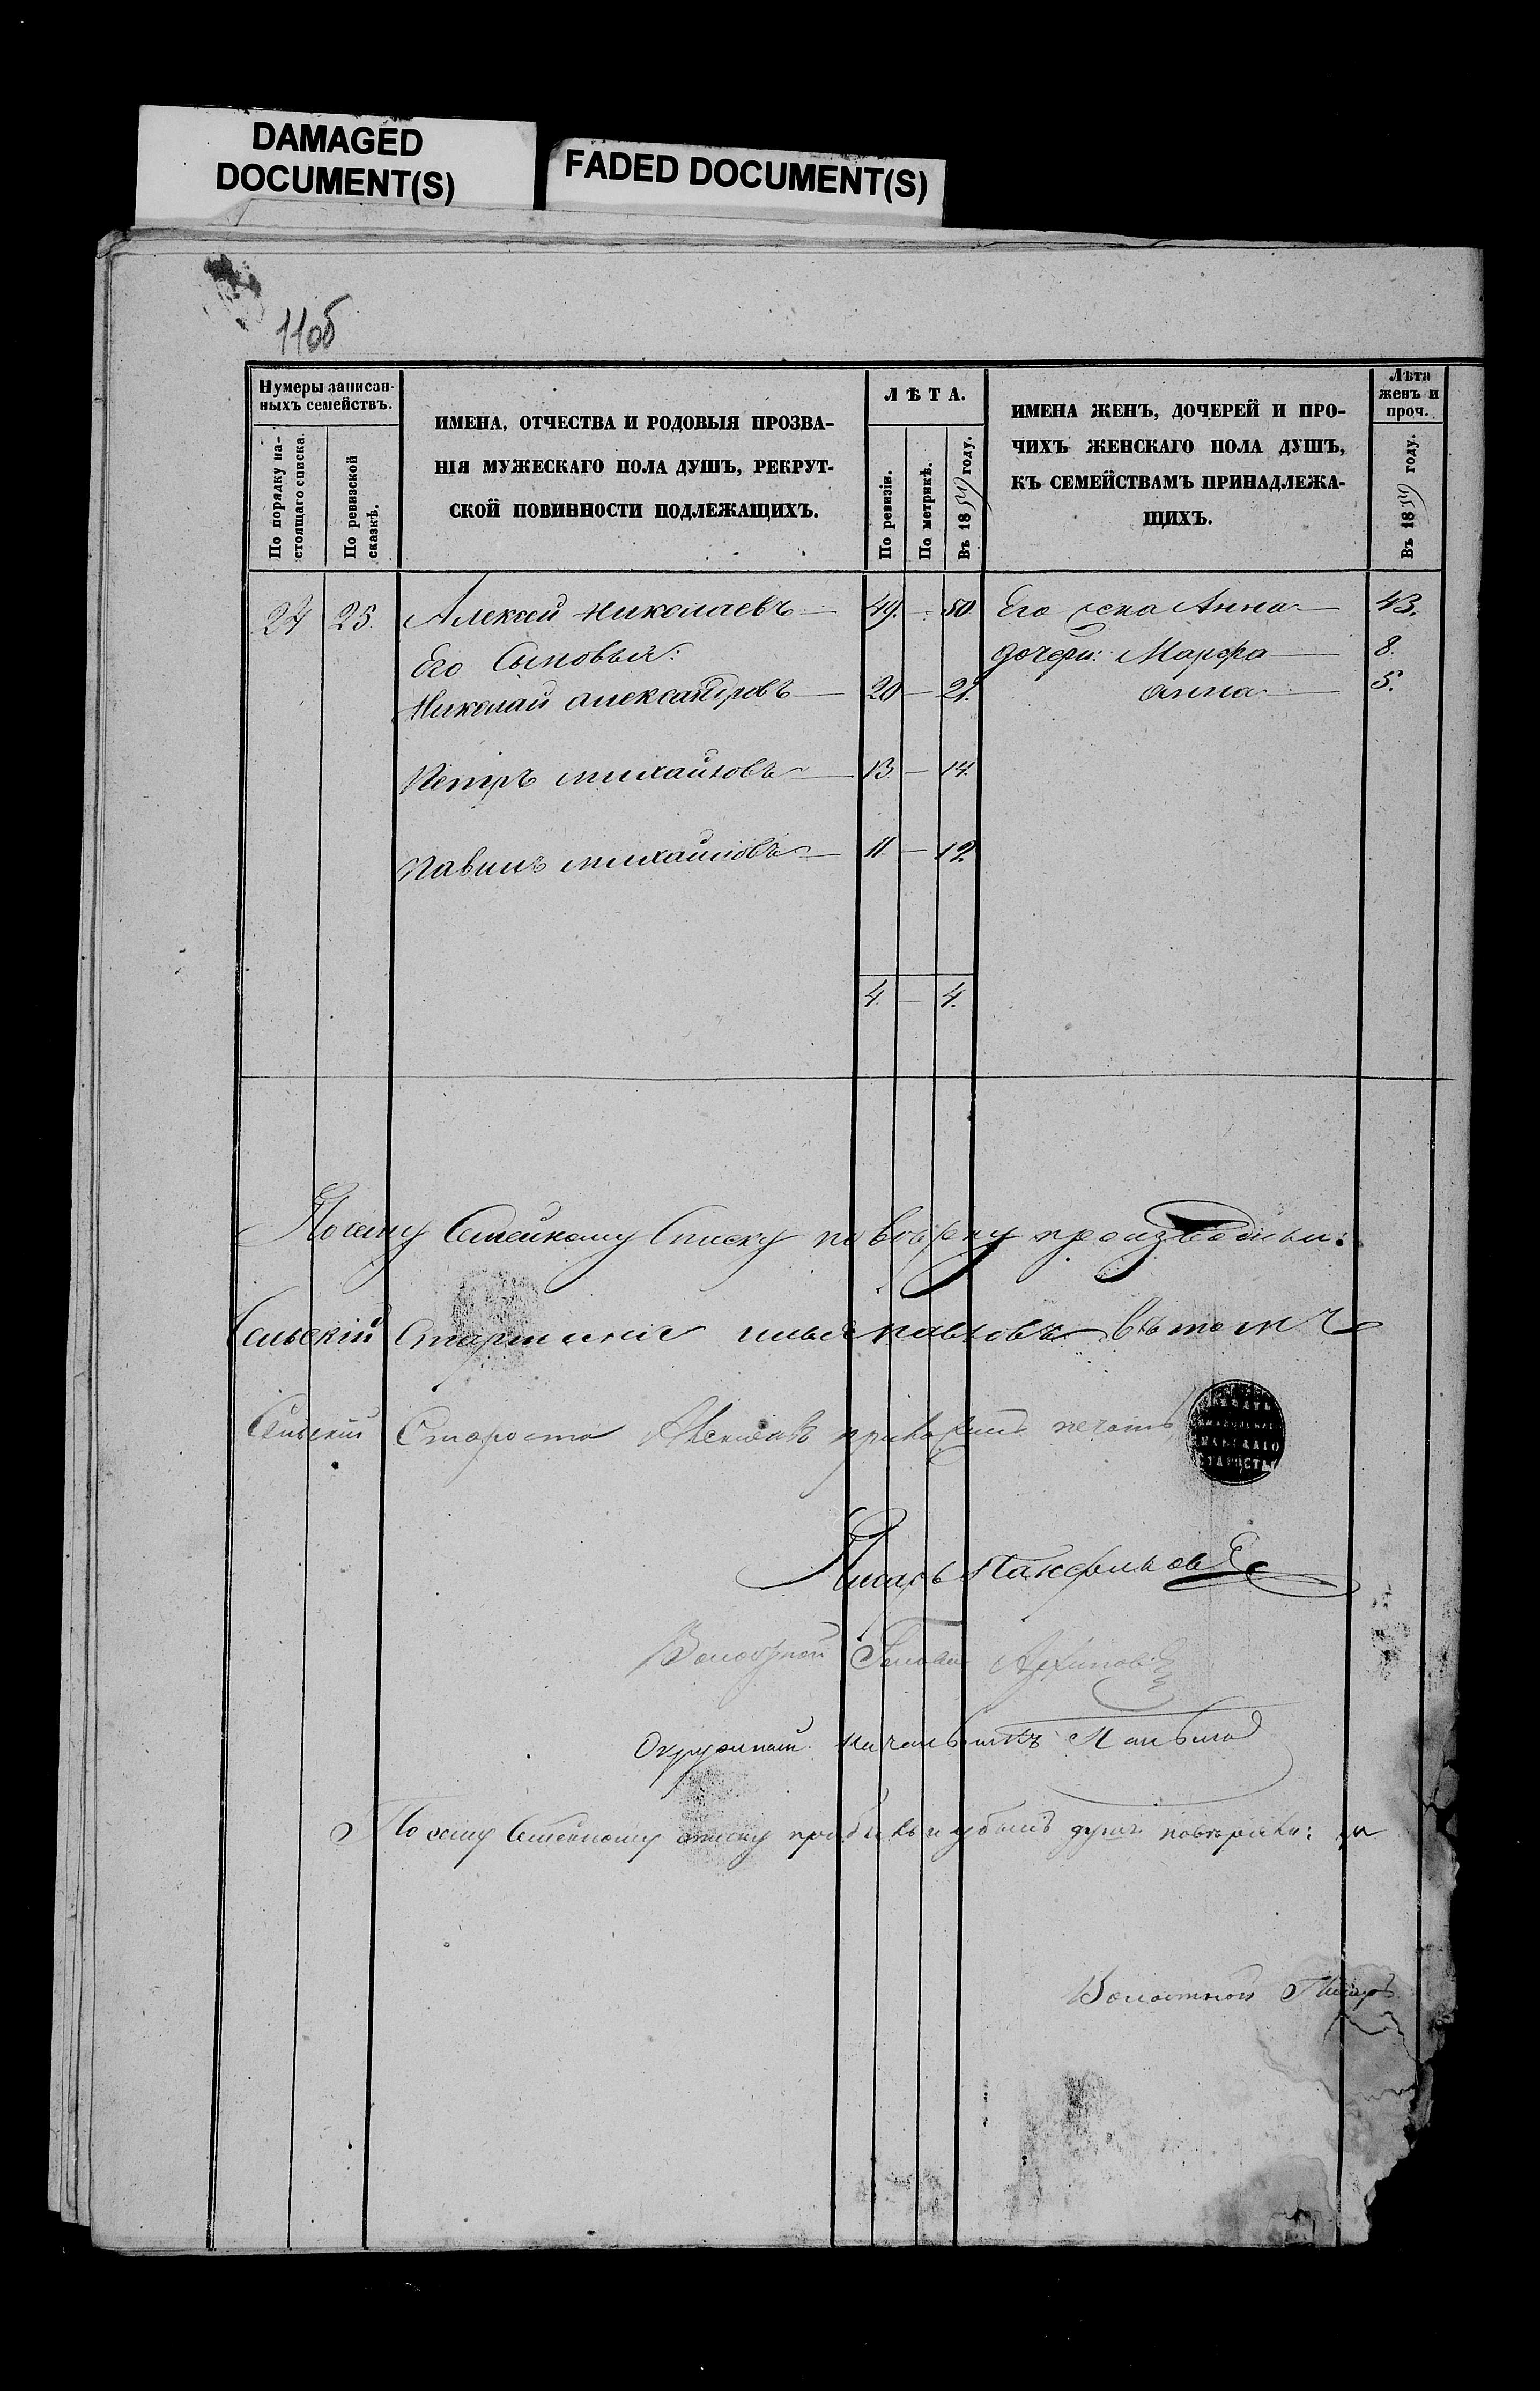 DAMAGED
DOCUMENT(S)
FADED DOCUMENT(S)
110б
Нумеры записан-
ныхъ семействъ.
По порядку на-
стоящаго списка.
По ревизской
сказкѣ.
ИМЕНА, ОТЧЕСТВА И РОДОВЫЯ ПРОЗВА-
НІЯ МУЖЕСКАГО ПОЛА ДУШЪ, РЕКРУТ-
СКОЙ ПОВИННОСТИ ПОДЛЕЖАЩИХЪ.
ЛѢТА.
По ревизіи.
По метрикѣ.
Въ 18 году.
ИМЕНА ЖЕНЪ, ДОЧЕРЕЙ И ПРО-
ЧИХЪ ЖЕНСКАГО ПОЛА ДУШЪ,
КЪ СЕМЕЙСТВАМЪ ПРИНАДЛЕЖА-
ЩИХЪ.
Лѣта
женъ и
проч.
Въ 18 году.
24 25. Алексѣй Николаевъ — 49. — 50 Его жена Анна — 43.
Его Сыновья: дочери: Марфа — 8.
Николай Александровъ — 20 — 21. анна — 5.
Петръ михайловъ — 13 — 14.
Павилъ михайловъ — 11 — 12.
4. — 4.
По сему Семейному Списку повѣрку производили:
Сельскій Старшина илья павловъ въ томъ
Сельскій Староста приложилъ печать
ПЕЧАТЬ
СТАРОСТЫ
Писарь Панфиловъ
Волостной Голова Архиповъ
Окружный начальникъ
По сему Семейному списку прибыль и убыль душъ повѣряли:
Волостной Писарь